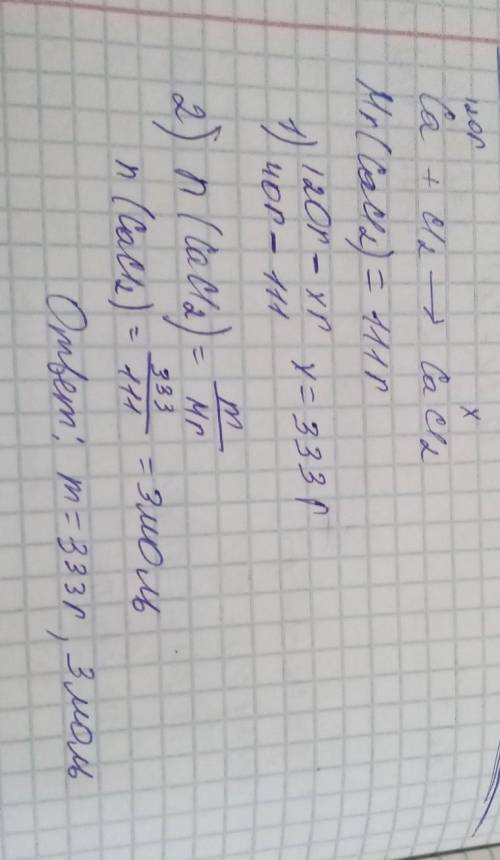 120г x
Ca + Cl₂ → CaCl₂
Mr(CaCl₂) = 111г
1) 120г – xг x = 333г
40г – 111
2) n(CaCl₂) = m/Mr
n(CaCl₂) = 333/111 = 3моль
Ответ: m = 333г, 3моль